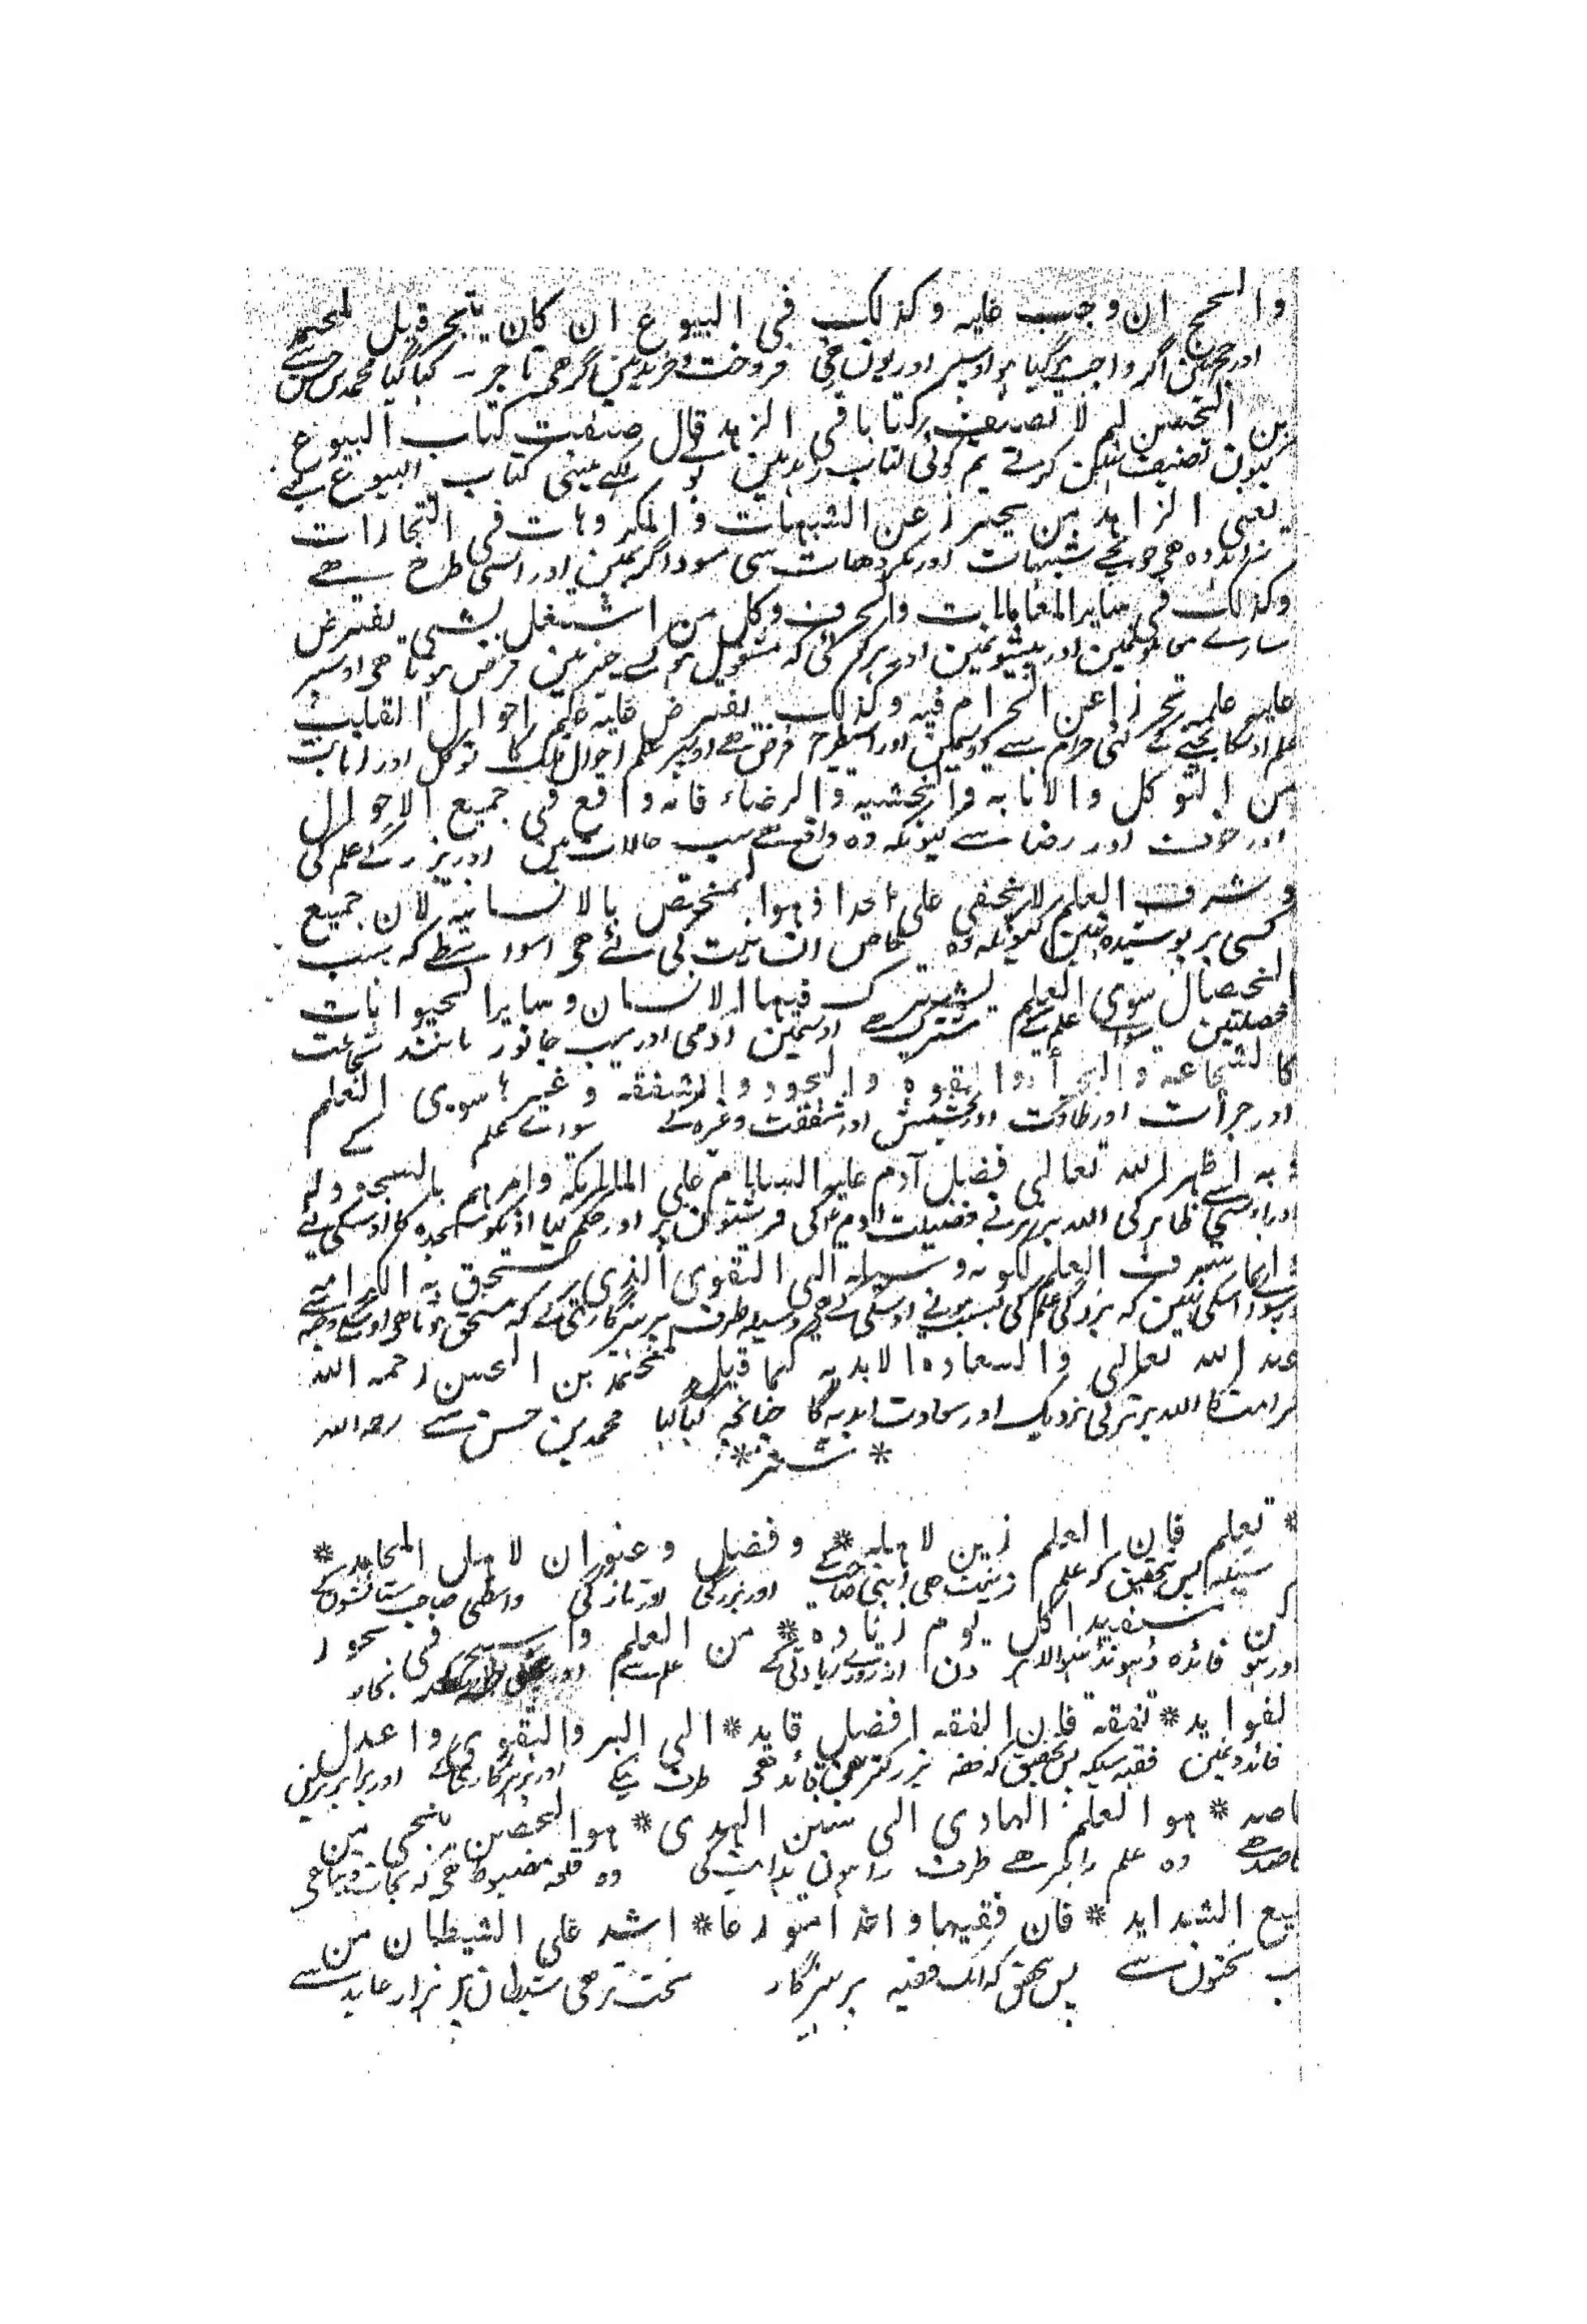 والحج ان وجب عليه وكذلك في البيوع ان كان يتجر قيل لمحمد
اور حج مين اگر واجب ہوگيا ہو اوسپر اور يون هي فروخت و خريد مين اگر هى تاجر ـ كہا گيا محمد بن حسن سے
بن الحسن لم لا تصنف كتابا في الزهد قال صنفت كتاب البيوع
كيون تصنيف نہين كرتے تم كوئى كتاب زہد مين تو كہے مينى كتاب البيوع كے
يعني الزاهد من يحترز عن الشبهات والمكروهات في التجارات
زاہد وہ هى جو بچے شبہات اور مكروهات سى سوداگرى مين اور اسى طرح سے
وكذلك في ساير المعاملات والحرف وكل من اشتغل بشي يفترض
سارے معاملون مين اور پيشون مين اور ہر كوئى كہ مشغول ہو كے چيز مين فرض ہوتا هى اوسپر
عليه علم تحرزا عن الحرام فيه وكذلك يفترض عليه علم احوال القلب
علم اوسكا بچنے كے لئى حرام سے اوسمين اور اسيطرح فرض هے اوسپر علم احوال دل كا توكل اور انابت
من التوكل والانابة والخشية والرضاء فانه واقع في جميع الاحوال
اور خوف اور رضا سے كيونكہ وہ واقع هے سب حالات مين اور بزرگى علم كى
وشرف العلم لا يخفى على احد اذ هو المختص بالانسانية لان جميع
كسى پر پوشيده نہين كيونكہ وہ خاص انسانيت كى لئے هى اسواسطے كہ سب
الخصال سوى العلم يشترك فيها الانسان وساير الحيوانات
خصلتين سواے علم كے مشترك هے اوسمين آدمى اور سب جانور مانند شجاعت
كالشجاعة والجرأة والقوة والجود والشفقة وغيرها سوى العلم
اور جرأت اور طاقت اور بخشش اور شفقت وغيره كے سواے علم كے
وبه اظهر الله تعالى فضل آدم عليه السلام على الملائكة وامرهم بالسجود له
اور اوسى سے ظاہر كى الله برتر نے فضيلت آدم ع كى فرشتون پر اور حكم كيا اونكو سجده كا اوسكى لئے
وانما شرف العلم لكونه وسيلة الى التقوى الذي يستحق به الكرامة
سوا اسكى نہين كہ بزرگى علم كى بسبب ہونے اوسكى كے هى وسيلہ طرف پرہيزگارى كے كہ مستحق ہوتا هى اوسكے وجہ
عند الله تعالى والسعادة الابدية كما قيل لمحمد بن الحسن رحمه الله
كرامت كا الله برتر كى نزديك اور سعادت ابديہ كا چنانچہ كہا گيا محمد بن حسن سے رحمہ الله
* شعر *
* تعلم فان العلم زين لاهله * وفضل وعنوان لاهل المحامد *
سيكهہ پس تحقيق كہ علم زينت هى اپنى صاحب كے اور بزرگى اور تازگى واسطى صاحب ستائشون كے
كن مستفيدا كل يوم زيادة * من العلم واسبح في بحور
اور ہو فائده ڈہونڈنيوالا ہر دن از روے زيادتى كے علم سے اور بحار
لفوايد * تفقه فان الفقه افضل قايد * الى البر والتقوى واعدل
فائدونمين فقہ سيكہ پس تحقيق كہ فقہ بزرگتر هى قائد هى طرف نيكى اور پرہيزگارى كے اور برابر ترين
اصد * هو العلم الهادي الى سنن الهدى * هو الحصن ينجي من
قاصد هے وہ علم راہبر هے طرف راہون ہدايت كى وہ قلعہ مضبوط هى كہ نجات ديتا هى
يع الشدايد * فان فقيها واحدا متورعا * اشد على الشيطان من
ب سختون سے پس تحقيق كہ ايك فقيہ پرہيزگار سخت تر هى شيطان پر ہزار عابد سے